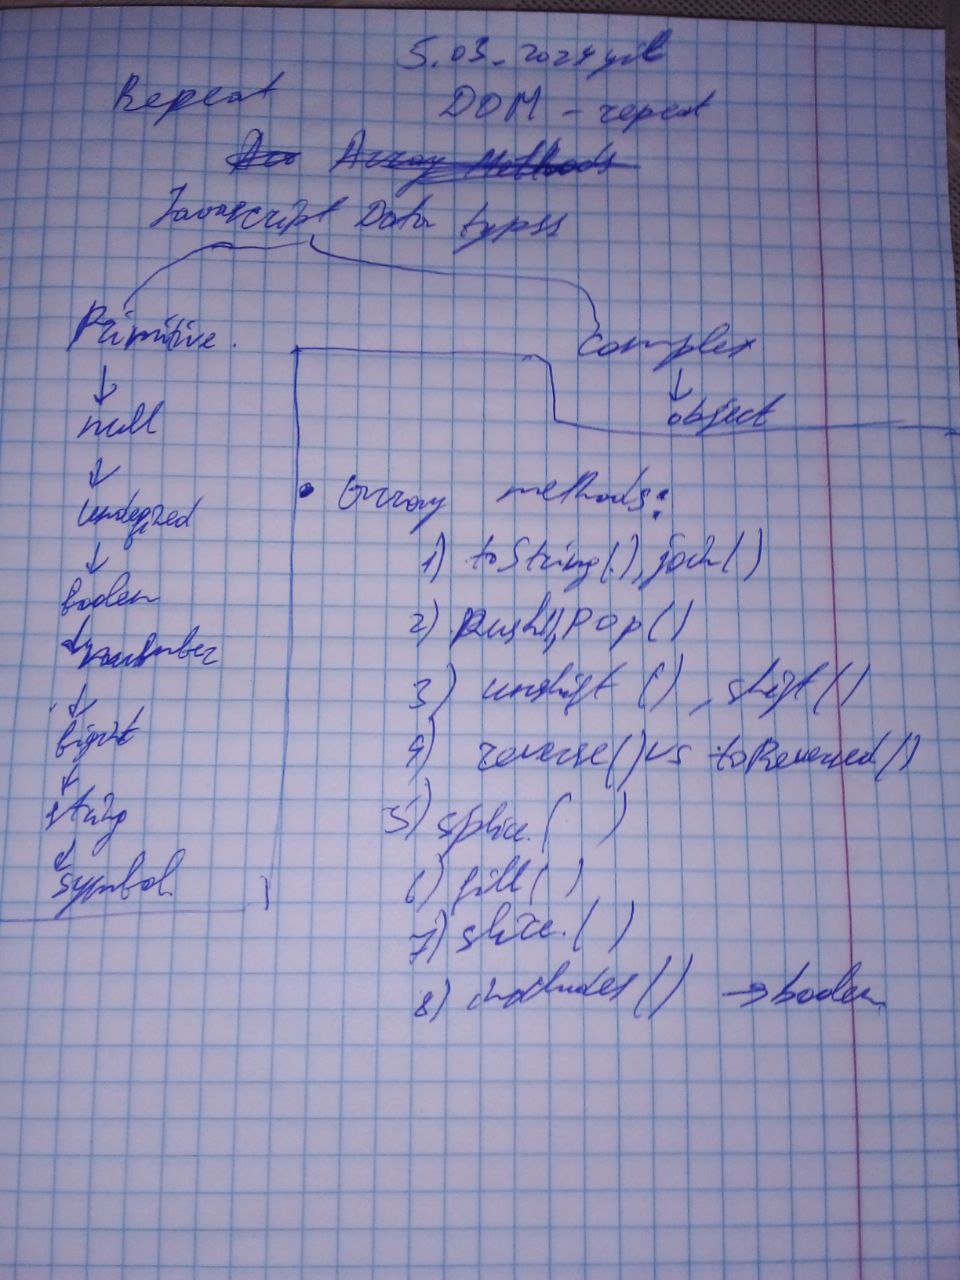 5.03.2024 yil
Repeat DOM - repeat
Array Methods
Javascript Data types
Primitive. Complex
↓ ↓
null object
↓
undefined
↓
boolen
↓
number
↓
bigint
↓
string
↓
symbol
• Array methods:
1) toString(), join()
2) push(), pop()
3) unshift (), shift()
4) reverse() vs toReversed()
5) splice.( )
6) fill( )
7) slice.( )
8) includes() → boolen